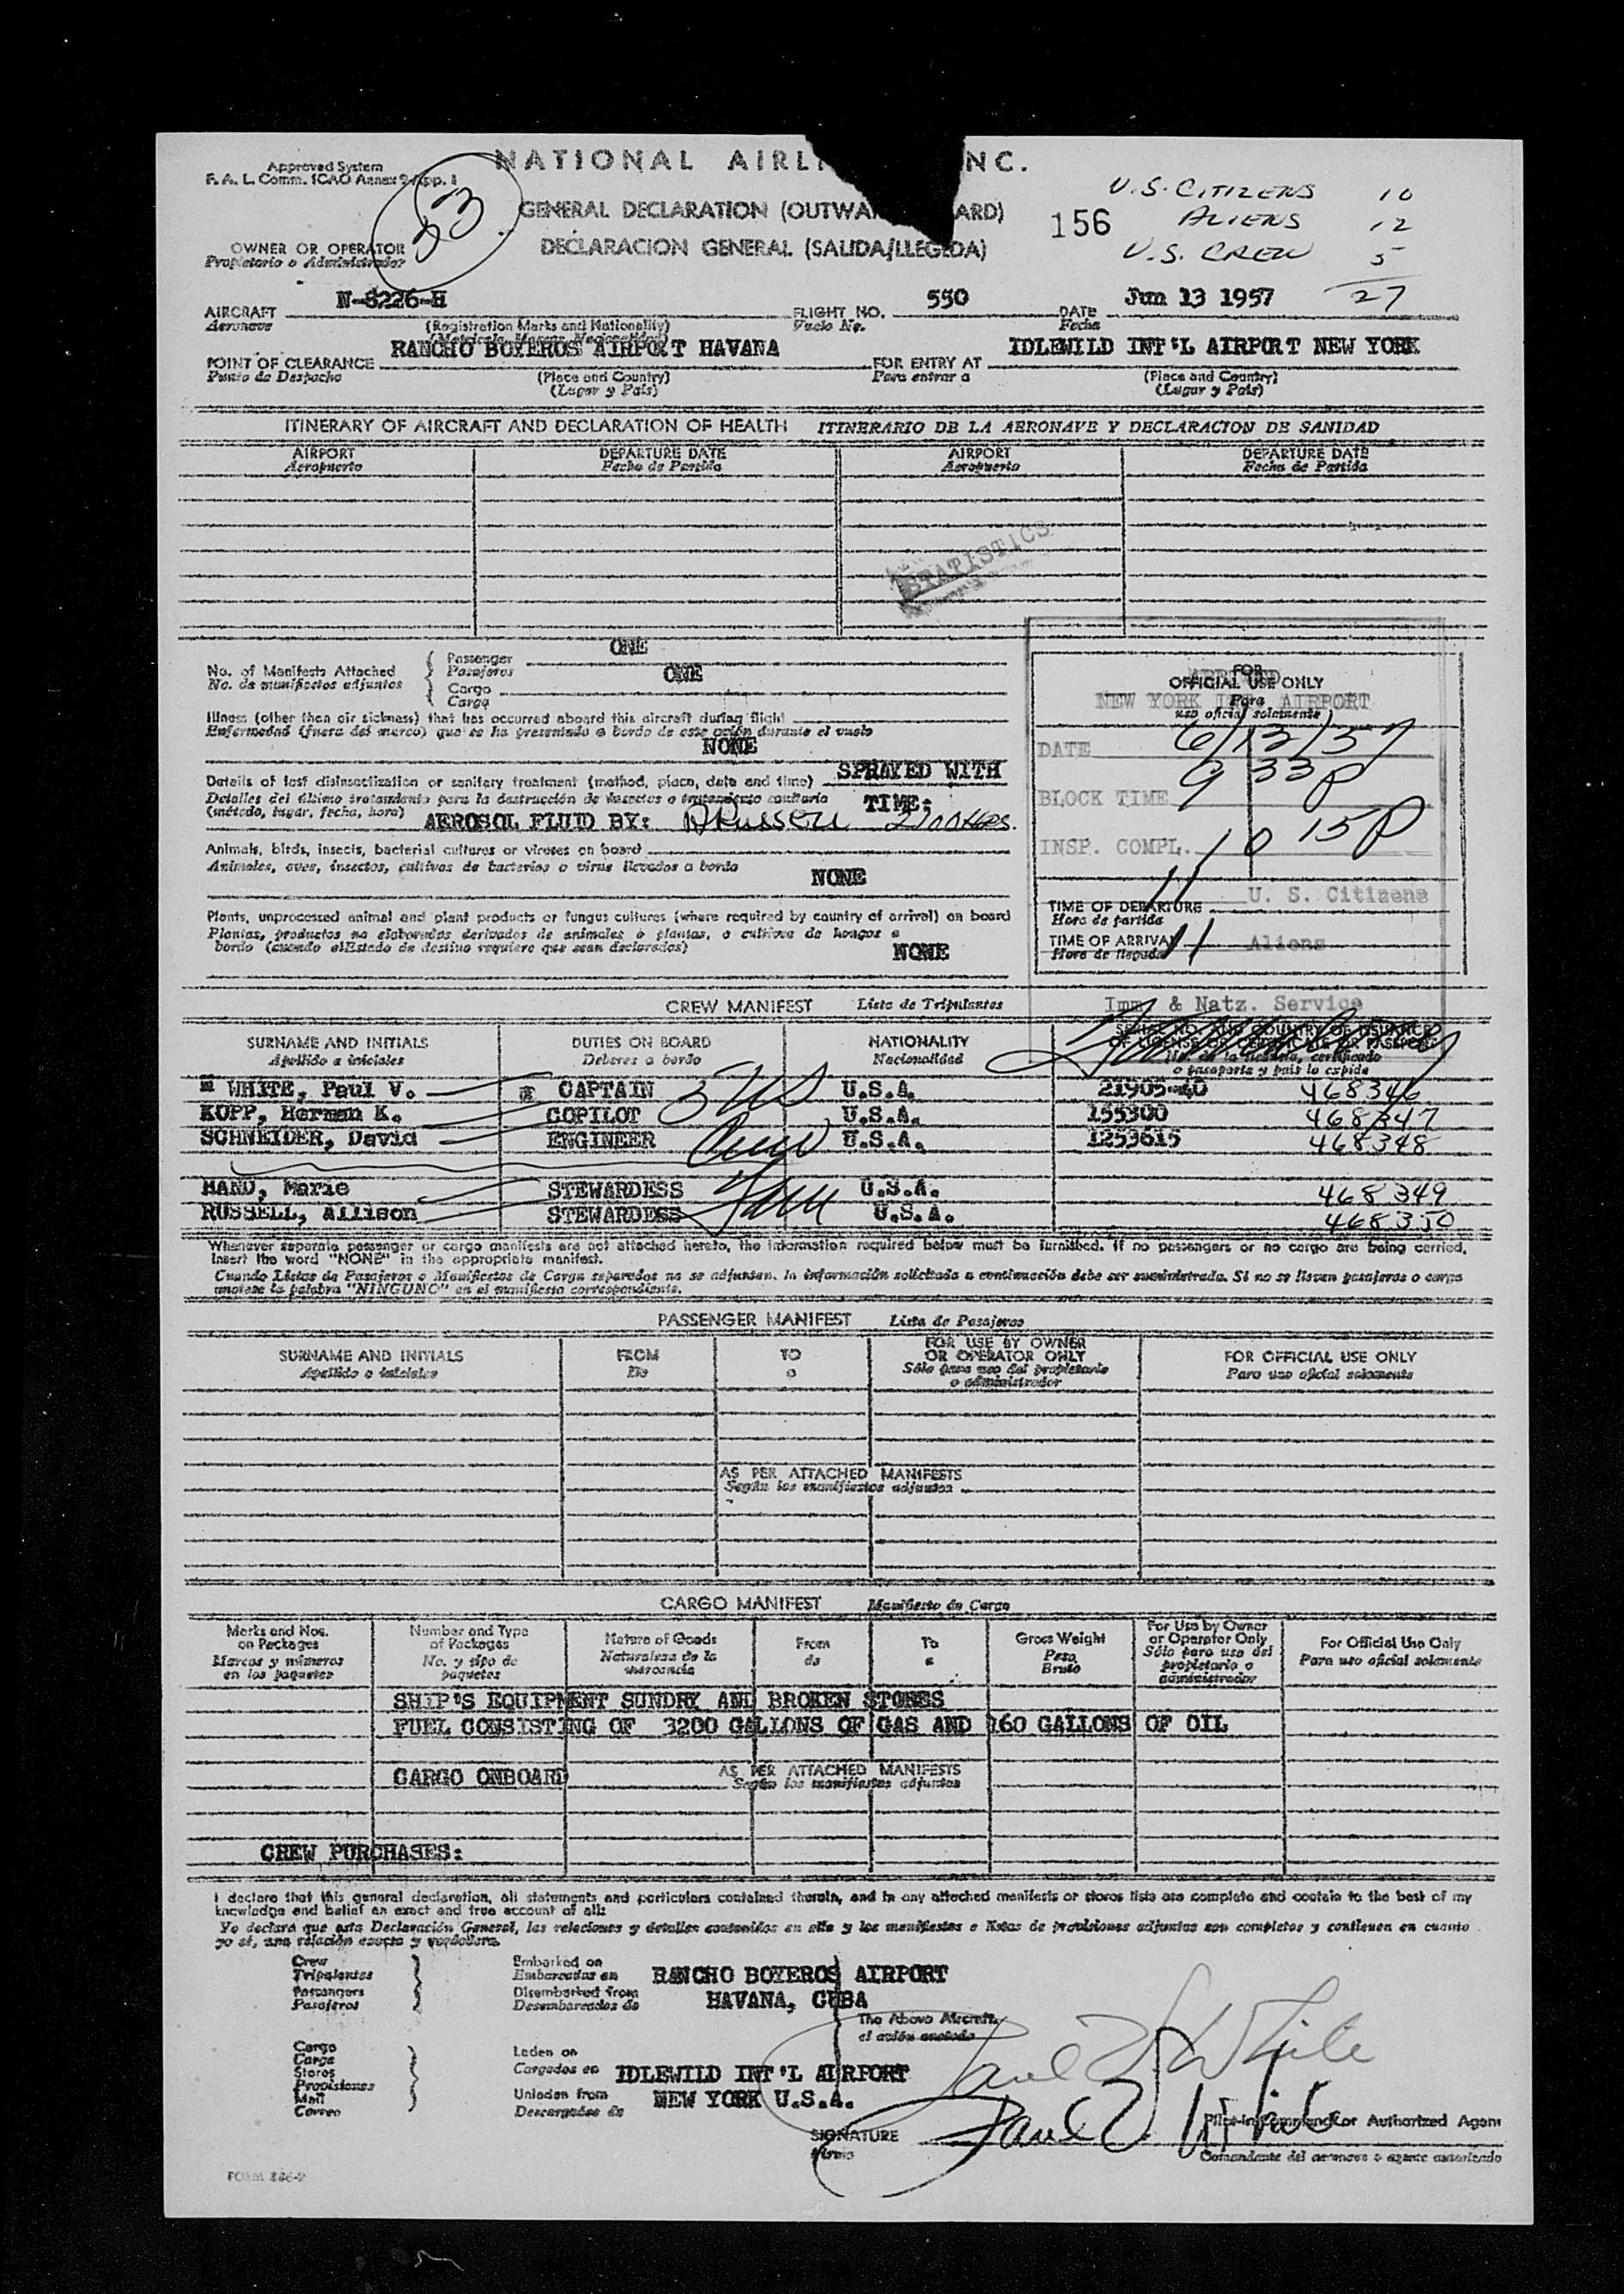 Approved System
F. A. L. Comm. ICAO Annex 9 App. 1
NATIONAL AIRLI NC.
GENERAL DECLARATION (OUTWA ARD)
DECLARACION GENERAL (SALIDA/LLEGADA)
156
U.S. CITIZENS 10
ALIENS 12
U.S. CREW 5
27
OWNER OR OPERATOR
Propietario o Administrador
AIRCRAFT N-8226-H FLIGHT NO. 550 DATE Jun 13 1957
Aeronave (Registration Marks and Nationality) Vuelo No. Fecha
POINT OF CLEARANCE RANCHO BOYEROS AIRPORT HAVANA FOR ENTRY AT IDLEWILD INT'L AIRPORT NEW YORK
Punto de Despacho (Place and Country) Para entrar a (Place and Country)
(Lugar y País) (Lugar y País)
ITINERARY OF AIRCRAFT AND DECLARATION OF HEALTH ITINERARIO DE LA AERONAVE Y DECLARACION DE SANIDAD
AIRPORT DEPARTURE DATE AIRPORT DEPARTURE DATE
Aeropuerto Fecha de Partida Aeropuerto Fecha de Partida
STATISTICS
No. of Manifests Attached Passenger ONE
No. de manifiestos adjuntos Pasajeros
Cargo ONE
Carga
Illness (other than air sickness) that has occurred aboard this aircraft during flight
Enfermedad (fuera del mareo) que se ha presentado a bordo de este avión durante el vuelo
NONE
Details of last disinsectization or sanitary treatment (method, place, date and time) SPRAYED WITH
Detalles del último tratamiento para la destrucción de insectos o tratamiento sanitario
(método, lugar, fecha, hora) AEROSOL FLUID BY: A Russell TIME: 2100 HRS.
Animals, birds, insects, bacterial cultures or viruses on board
Animales, aves, insectos, cultivos de bacterias o virus llevados a bordo
NONE
Plants, unprocessed animal and plant products or fungus cultures (where required by country of arrival) on board
Plantas, productos no elaborados derivados de animales o plantas, o cultivos de hongos a
bordo (cuando el Estado de destino requiere que sean declarados)
NONE
FOR
OFFICIAL USE ONLY
Para
uso oficial solamente
NEW YORK INT AIRPORT
DATE 6/13/57
BLOCK TIME 9 33 P
INSP. COMPL. 10 15 P
11 U. S. Citizens
TIME OF DEPARTURE
Hora de partida
TIME OF ARRIVAL 11 Aliens
Hora de llegada
Imm. & Natz. Service
CREW MANIFEST Lista de Tripulantes
SURNAME AND INITIALS DUTIES ON BOARD NATIONALITY SERIAL NO. AND COUNTRY OF ISSUANCE
OF LICENSE OR CERTIFICATE OR PASSPORT
Apellido e iniciales Deberes a bordo Nacionalidad No. de la licencia, certificado
o pasaporte y país lo expide
WHITE, Paul V. CAPTAIN U.S.A. 21905-40 468346
KOPP, Herman K. COPILOT U.S.A. 155300 468347
SCHNEIDER, David ENGINEER U.S.A. 1253615 468348
HAND, Marie STEWARDESS U.S.A. 468349
RUSSELL, Allison STEWARDESS U.S.A. 468350
Whenever separate passenger or cargo manifests are not attached hereto, the information required below must be furnished. If no passengers or no cargo are being carried,
insert the word "NONE" in the appropriate manifest.
Cuando Listas de Pasajeros o Manifiestos de Carga separados no se adjuntan, la información solicitada a continuación debe ser suministrada. Si no se llevan pasajeros o carga
anótese la palabra "NINGUNO" en el manifiesto correspondiente.
PASSENGER MANIFEST Lista de Pasajeros
SURNAME AND INITIALS FROM TO FOR USE BY OWNER
OR OPERATOR ONLY FOR OFFICIAL USE ONLY
Apellido e iniciales De a Sólo para uso del propietario
o administrador Para uso oficial solamente
AS PER ATTACHED MANIFESTS
Según los manifiestos adjuntos
CARGO MANIFEST Manifiesto de Carga
Marks and Nos.
on Packages
Marcas y números
en los paquetes
Number and Type
of Packages
No. y tipo de
paquetes
Nature of Goods
Naturaleza de la
mercancía
From
de
To
a
Gross Weight
Peso
Bruto
For Use by Owner
or Operator Only
Sólo para uso del
propietario o
administrador
For Official Use Only
Para uso oficial solamente
SHIP'S EQUIPMENT SUNDRY AND BROKEN STORES
FUEL CONSISTING OF 3200 GALLONS OF GAS AND 160 GALLONS OF OIL
CARGO ONBOARD AS PER ATTACHED MANIFESTS
Según los manifiestos adjuntos
CREW PURCHASES:
I declare that this general declaration, all statements and particulars contained therein, and in any attached manifests or stores lists are complete and contain to the best of my
knowledge and belief an exact and true account of all:
Yo declaro que esta Declaración General, las relaciones y detalles contenidos en ella y los manifiestos e listas de provisiones adjuntas son completos y contienen en cuanto
yo sé, una relación exacta y verdadera.
Crew
Tripulantes
Passengers
Pasajeros
Embarked on
Embarcadas en RANCHO BOYEROS AIRPORT
Disembarked from
Desembarcados de HAVANA, CUBA
The Above Aircraft
el avión anotado
Cargo
Carga
Stores
Provisiones
Mail
Correo
Laden on
Cargados en IDLEWILD INT'L AIRPORT
Unladen from NEW YORK U.S.A.
Descargados de
Paul V. White
SIGNATURE Paul V. White
Firma
Pilot-in-Command or Authorized Agent
Comandante del aeronave o agente autorizado